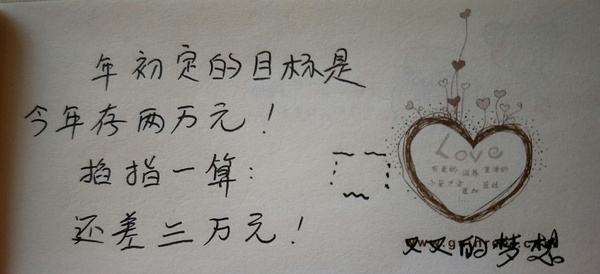 年初定的目标是
今年存两万元！
掐指一算：
还差三万元！
Love
的梦想